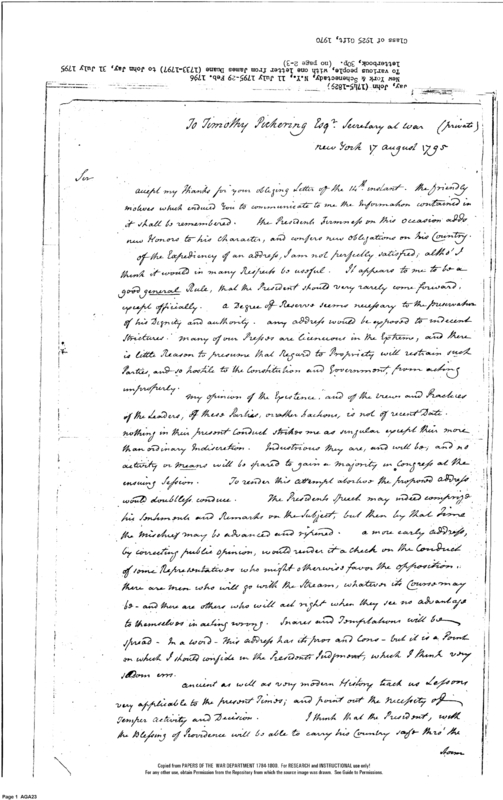 Class of 1925 Gift, 1970
letterbook, 30p. (no page 2-3)
To various people, with one letter from James Duane (1733-1797) to John Jay, 31 July 1795
New York & Schenectady, N.Y., 11 July 1795-29 Feb. 1796
Jay, John (1745-1829)
To Timothy Pickering Esqr. Secretary at war (private)
new York 17 august 1795
Sir
accept my thanks for your obliging Letter of the 14th instant. the friendly
motives which induced You to communicate to me the Information contained in
it shall be remembered. the Presidents Firmness on this occasion adds
new Honors to his Character, and confers new obligations on his Country.
of the Expediency of an address, I am not perfectly satisfied; altho' I
think it would in many Respects be useful. It appears to me to be a
good general Rule, that the President should very rarely come forward
except officially. a Degree of Reserve seems necessary to the preservation
of his Dignity and authority. any address would be exposed to indecent
Strictures. many of our Presses are licencious in the Extreme, and there
is little Reason to presume that Regard to Propriety will restrain such
Parties, and so hostile to the Constitution and Government, from acting
improperly.
my opinion of the Existence, and of the views and Practices
of the Leaders, of these Parties, or rather factions, is not of recent Date.
nothing in their present Conduct strikes me as singular except their more
than ordinary Indiscretion. Industrious they are, and will be, and no
activity or means will be spared to gain a majority in Congress at the
ensuing Session. To render this attempt abortive the proposed address
would doubtless conduce. The Presidents Speech may indeed comprize
his Sentiments and Remarks on the Subject, but then by that Time
the mischief may be advanced and ripened. a more early address,
by correcting public opinion, would render it a check on the Conduct
of some Representatives who might otherwise favor the opposition.
there are men who will go with the Stream, whatever its Course may
be - and there are others who will act right when they see no advantage
to themselves in acting wrong. Snares and Temptations will be
spread - In a word - this address has its pros and cons - but it is a Point
on which I should confide in the Presidents Judgment, which I think very
seldom errs.
ancient as well as very modern History teach us Lessons
very applicable to the present Times; and point out the necessity of
Temper activity and Decision. I think that the President, with
the Blessing of Providence will be able to carry his Country safe thro' the
storm
Copied from PAPERS OF THE WAR DEPARTMENT 1784-1800: For RESEARCH and INSTRUCTIONAL use only!
For any other use, obtain Permission from the Repository from which the source image was drawn. See Guide to Permissions.
Page 1 AGA23